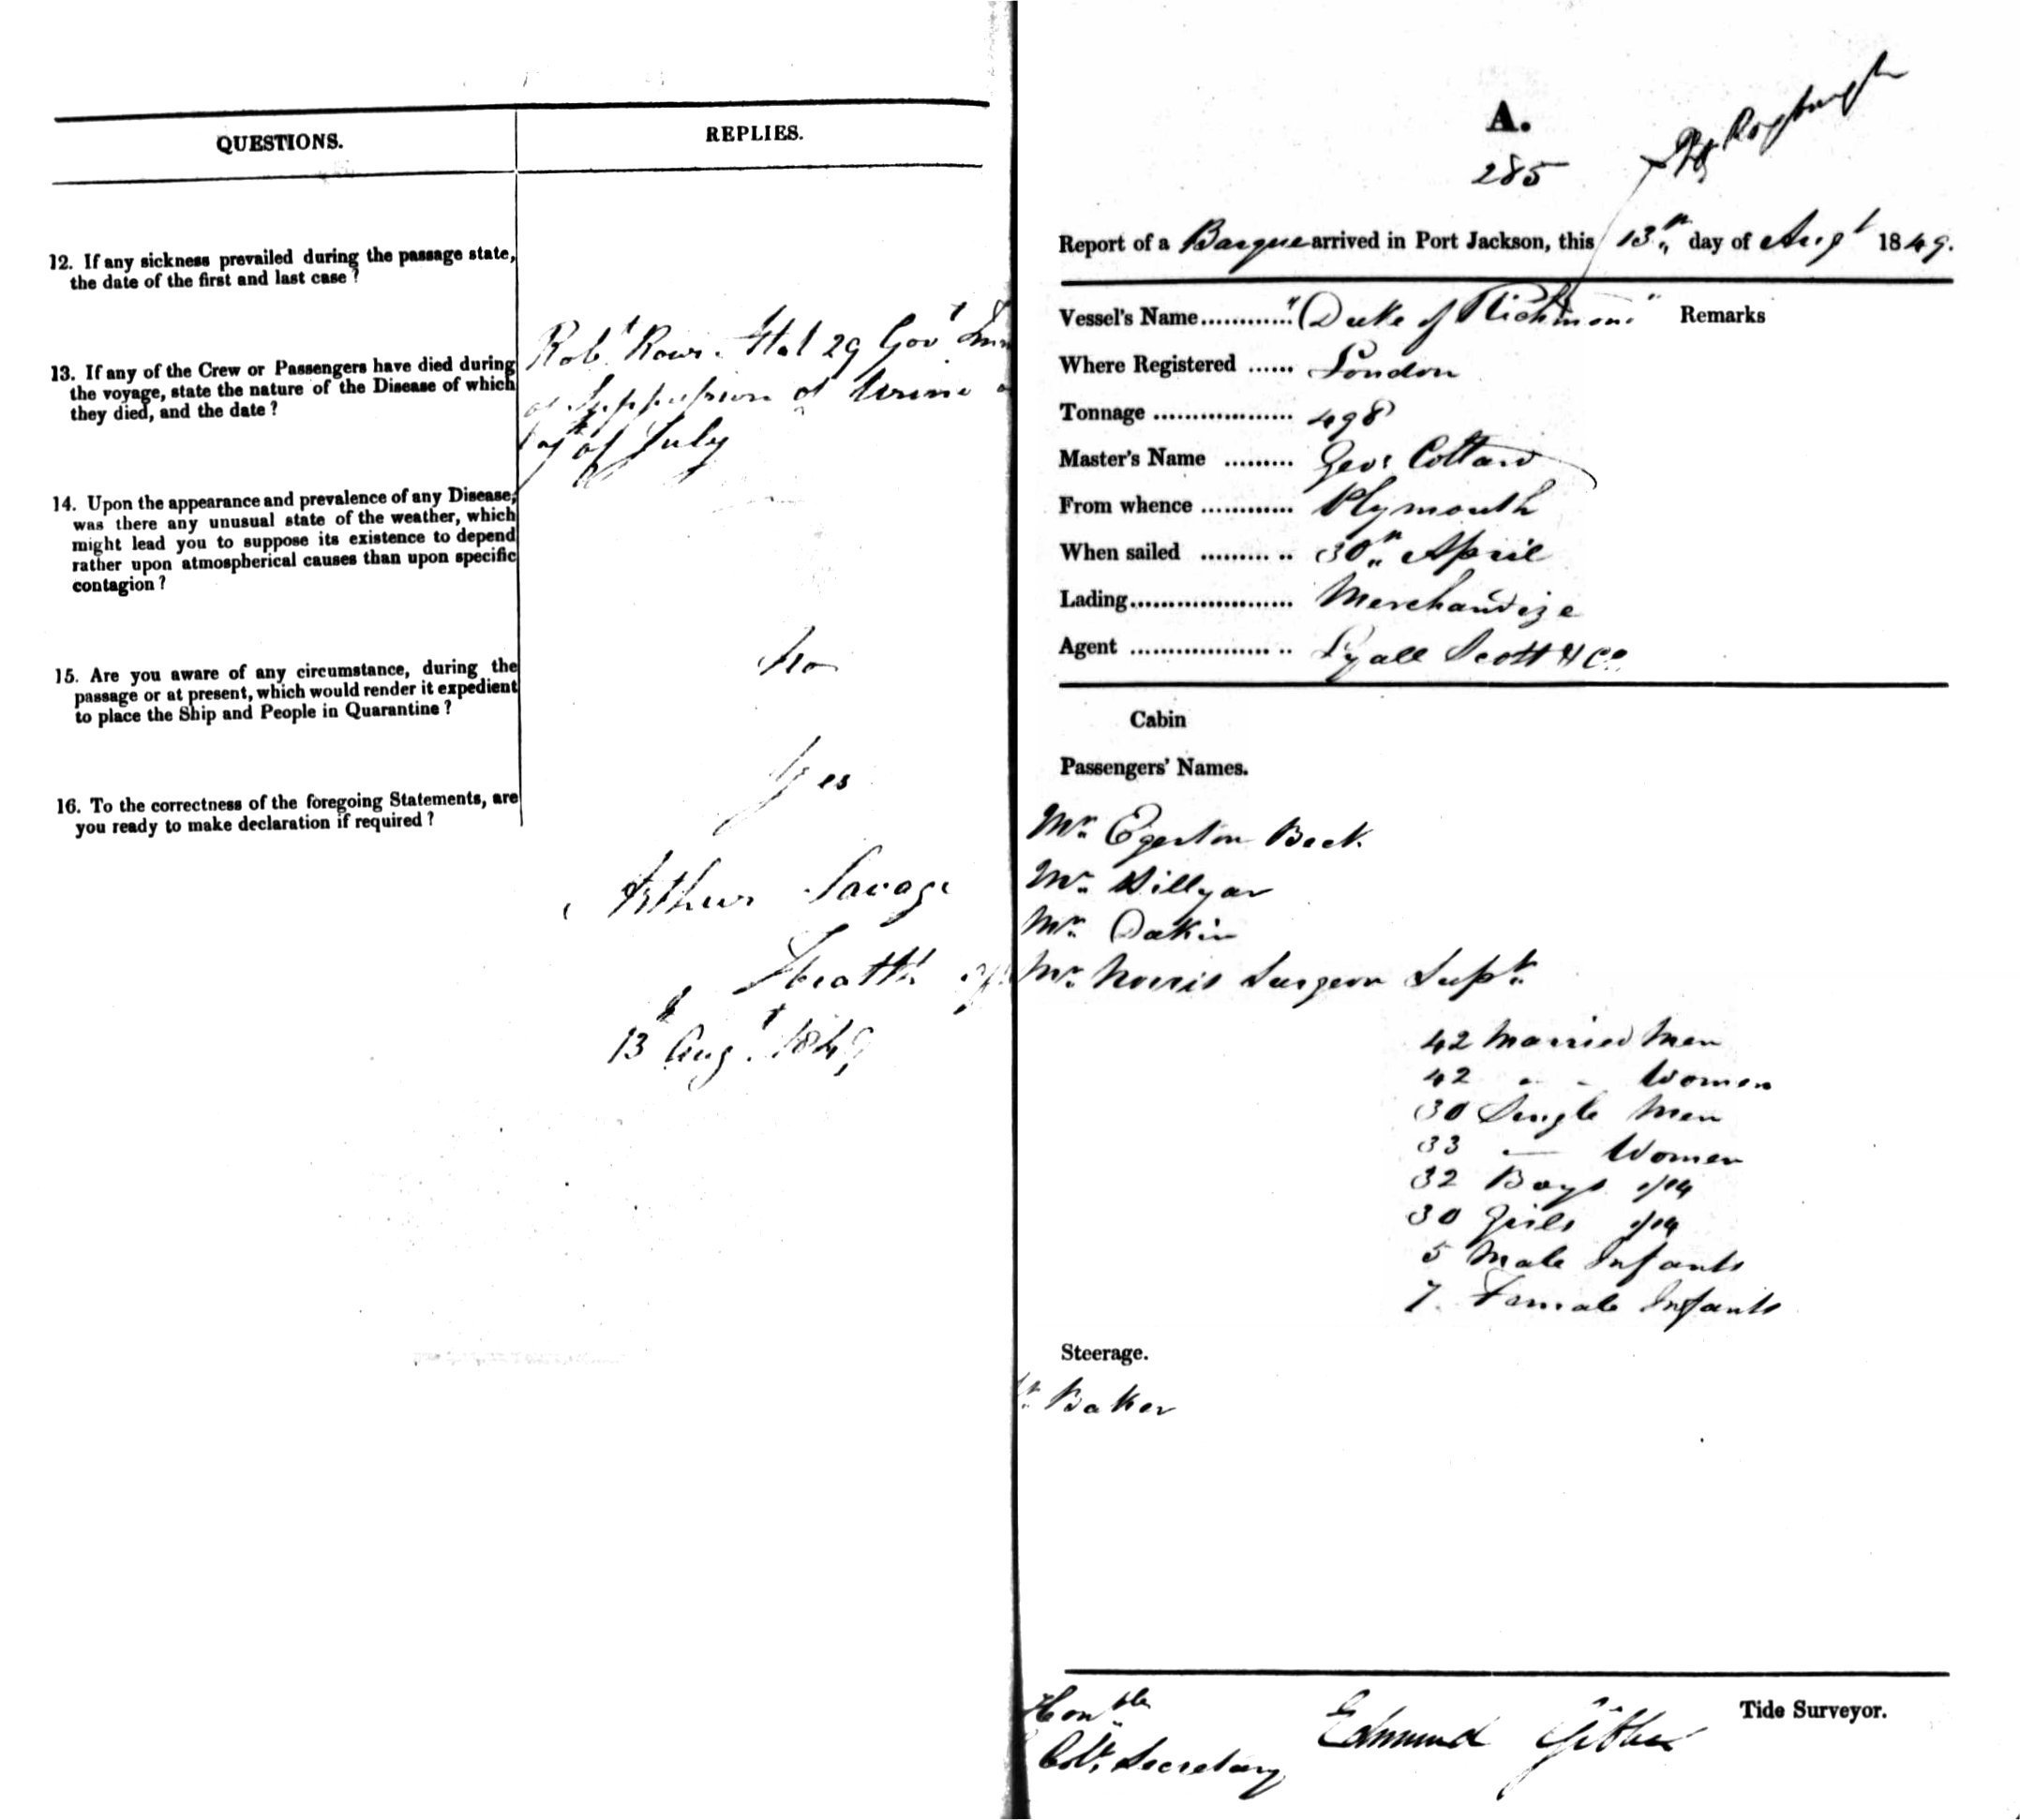 QUESTIONS.
REPLIES.
12. If any sickness prevailed during the passage state,
the date of the first and last case?
13. If any of the Crew or Passengers have died during
the voyage, state the nature of the Disease of which
they died, and the date?
Robt Rows. Ætat 29 Govt
of Suppression of Urine
of July
14. Upon the appearance and prevalence of any Disease,
was there any unusual state of the weather, which
might lead you to suppose its existence to depend
rather upon atmospherical causes than upon specific
contagion?
15. Are you aware of any circumstance, during the
passage or at present, which would render it expedient
to place the Ship and People in Quarantine?
No
16. To the correctness of the foregoing Statements, are
you ready to make declaration if required?
Yes
Arthur Savage
Health
13th Augt. 1849
A.
285
Report of a Barque arrived in Port Jackson, this 13th day of Augt 1849.
Vessel's Name............ "Duke of Richmond" Remarks
Where Registered ...... London
Tonnage .................. 498
Master's Name ......... Geo: Cottard
From whence ............ Plymouth
When sailed ......... .. 30th April
Lading..................... Merchandize
Agent .................. .. Lyall Scott & Co.
Cabin
Passengers' Names.
Mr. Egerton Beck
Mr. Hillyar
Mr. Dakin
Mr. Norris Surgeon Supt.
42 Married Men
42 " " Women
30 Single Men
33 — Women
32 Boys 1/14
30 Girls 1/14
5 Male Infants
7 Female Infants
Steerage.
Baker
Honble
Coll. Secretary
Edmund Gibbes
Tide Surveyor.